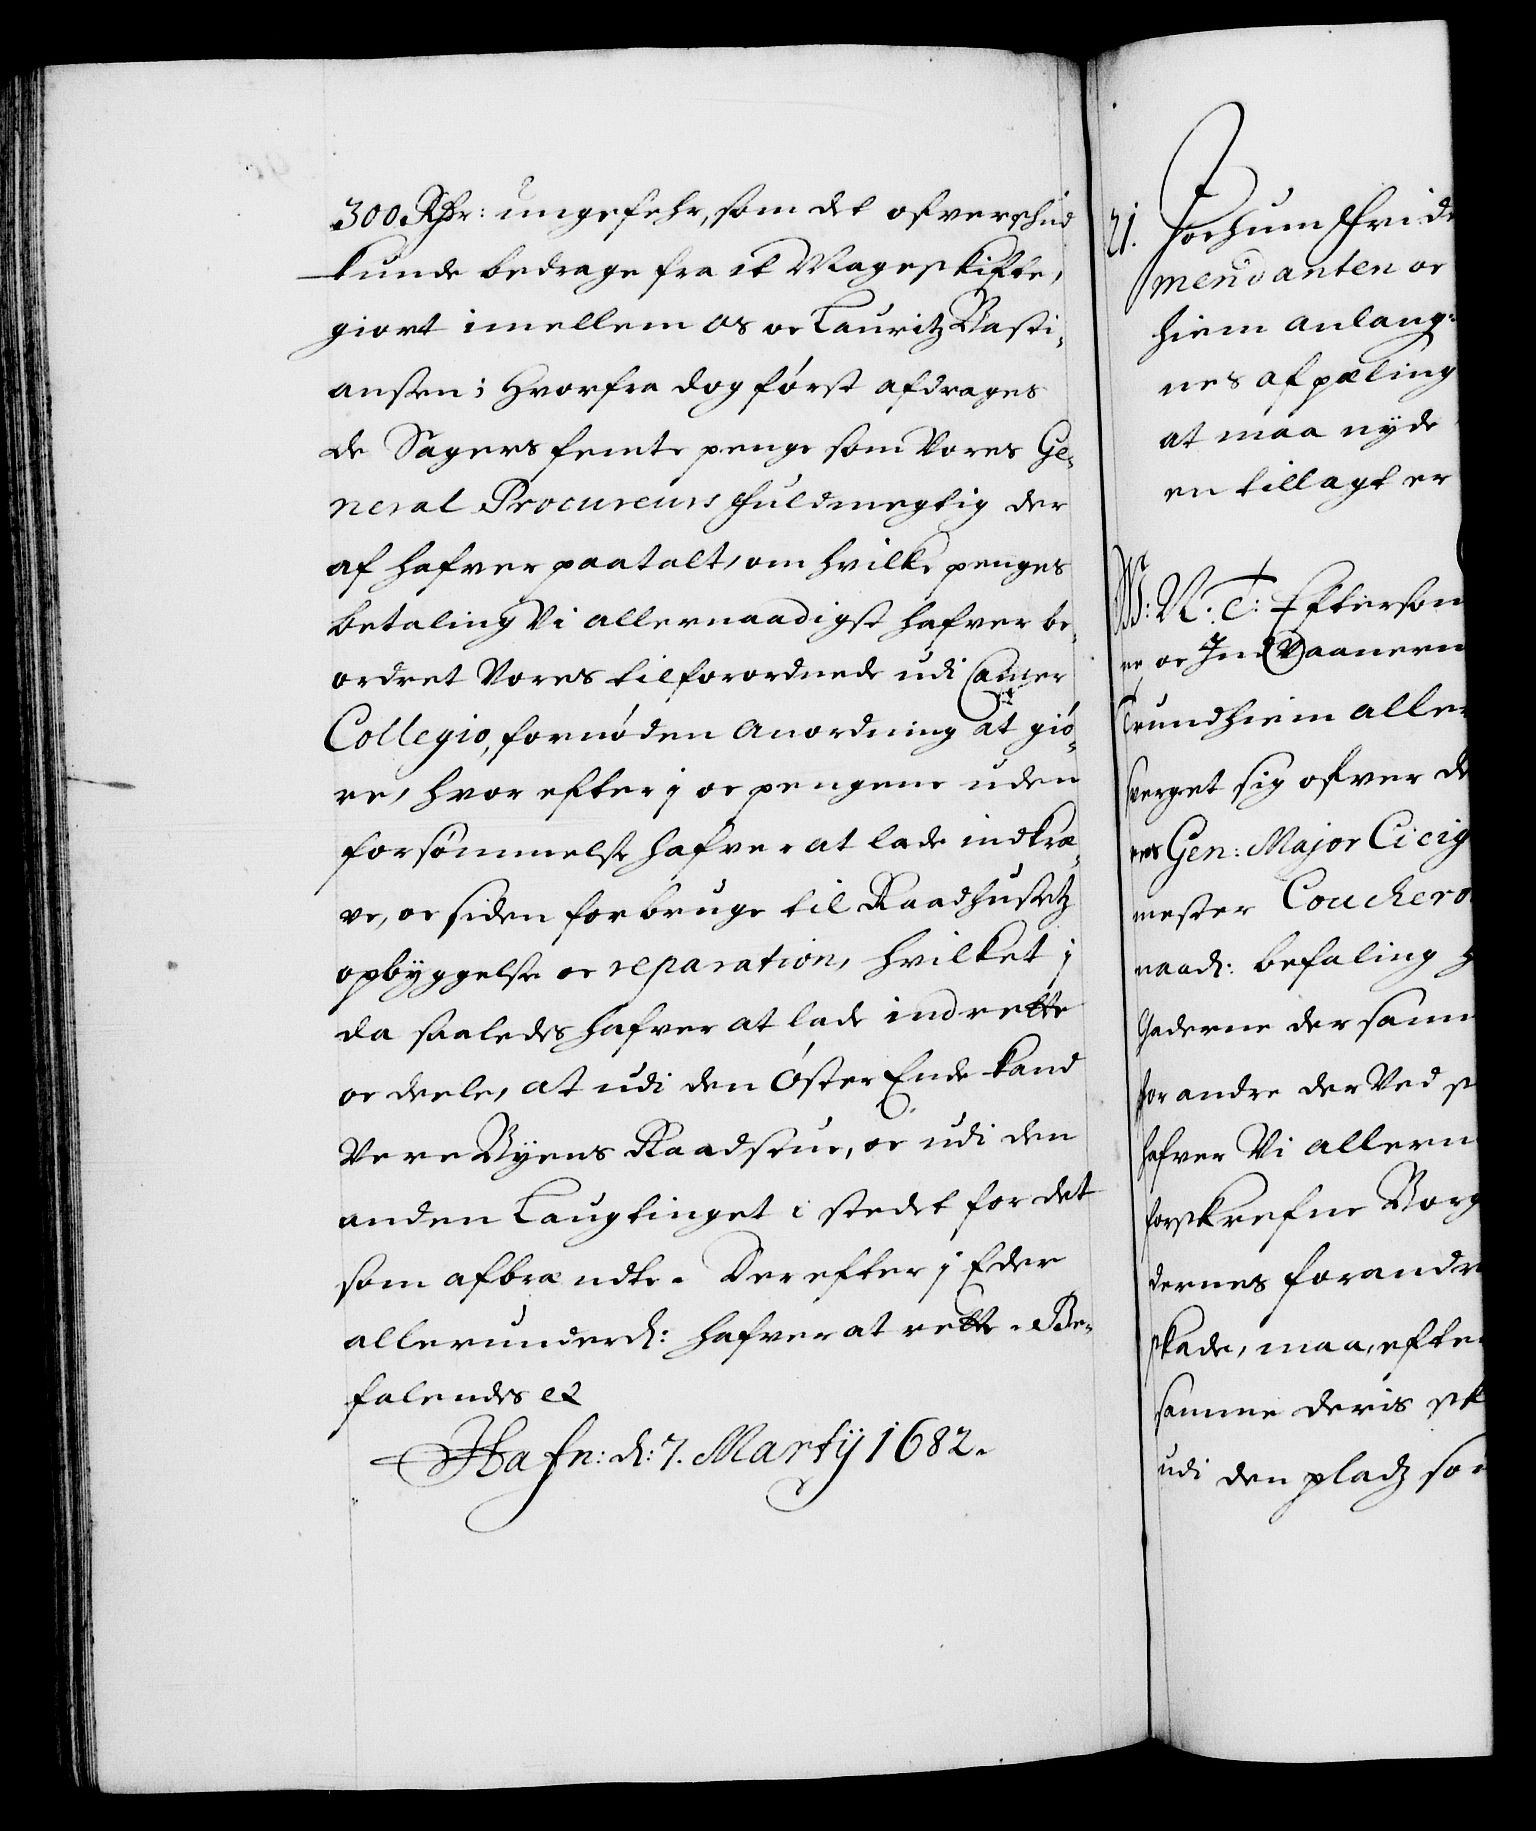 300 Rdr: ungefehr, som det ofverschud
kunde bedrage fra et Mageskifte,
giort imellem os oc Lauritz Basti¬
ansen; Hvorfra dog først afdrages
de Sagers femte penge som Vores Ge¬
neral Procureurs fuldmegtig der
af hafver paatalt, om hvilke penges
betaling Vi allernaadigst hafver be¬
ordret Vores tilforordnede udi Camer
Collegio, fornøden Anordning at giø¬
re, hvor efter j oc pengene uden
forsømmelse hafver at lade indkræ¬
ve, oc siden forbruge til Raadhusetz
opbyggelse oc reparation, hvilket j
da saaledes hafver at lade indrette
oc deele, at udi den Øster Ende kand
Vere Byens Raadstue, oc udi den
anden Laugtinget i stedet for det
som afbrændte. Der efter j Eder
allerunderd: hafver at rette. Be¬
falendes etc
Hafn: d: 7. Martij 1682.
21. Jochum Frid
mendanten oc
hiem anlang¬
nes afpæling
at maa nyde
en tillagt er
V: N: T: Eftersom
re oc Ind Vaanern
Trundhiem aller
sverget sig ofver de
res Gen: Major Cicig
mester Coucheron
naad: befaling h
Gaderne der samm
for andre der Ved s
hafver Vi allern
forskrefne Borg
dernes forandr
skade, maa, efter
samme deris sk
udi den pladz som